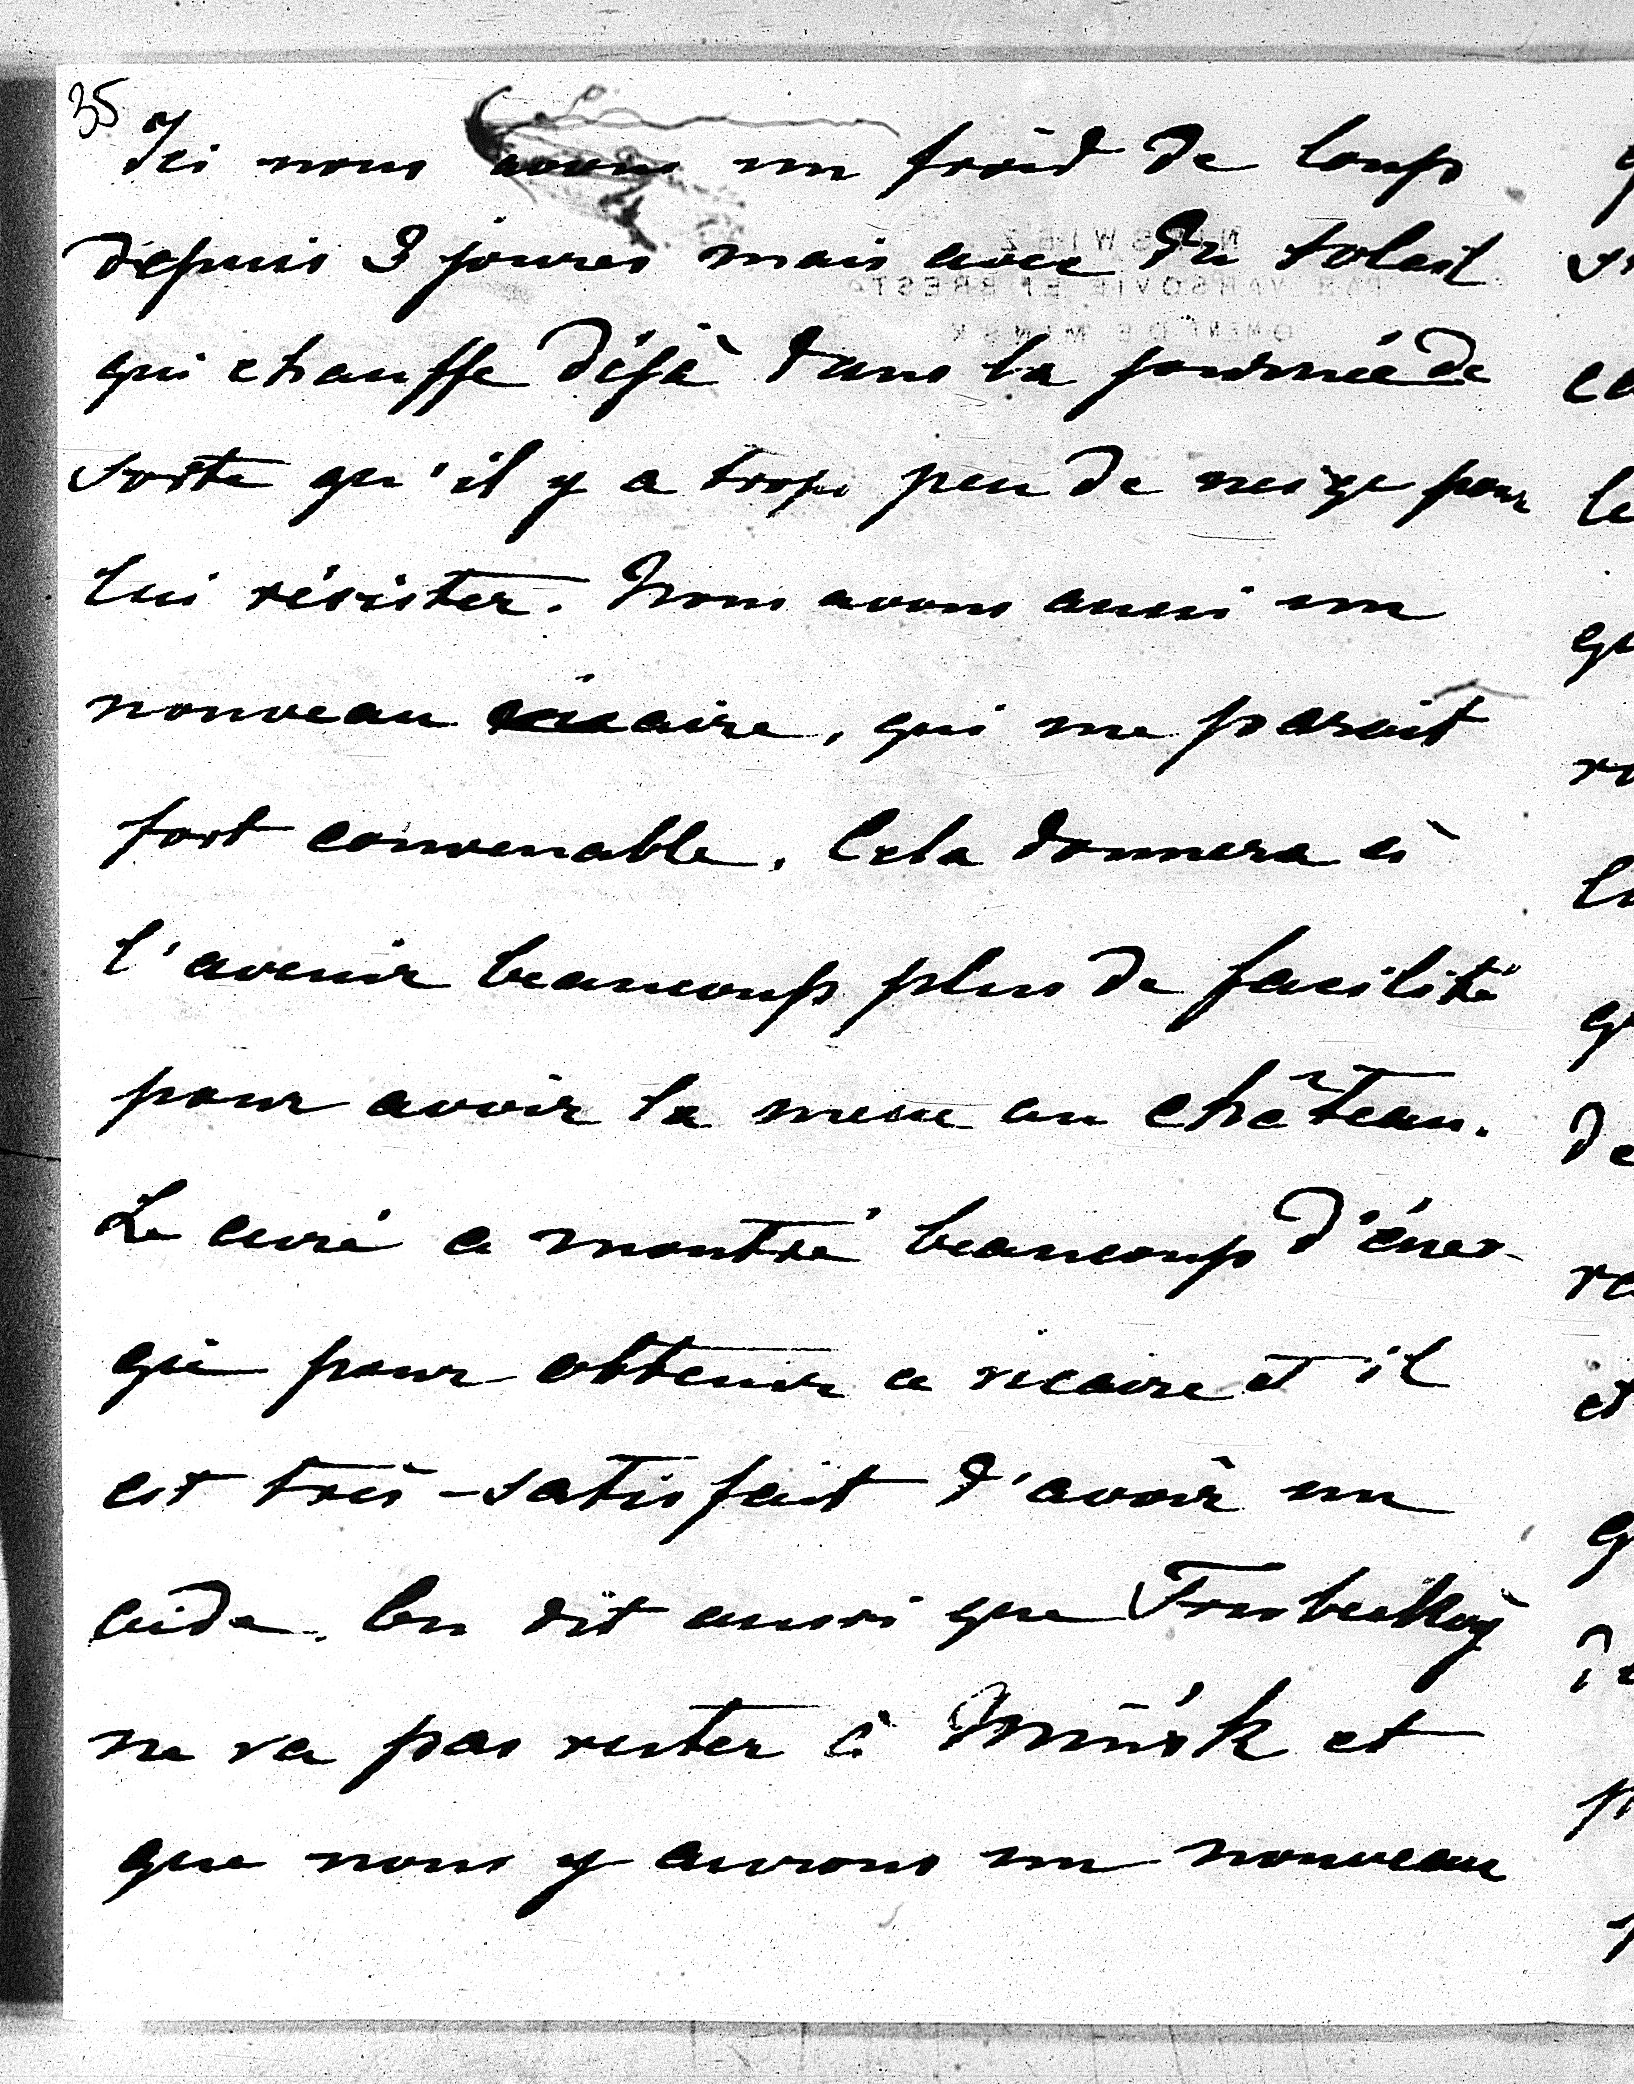 35
Ici nous avons un froid de loup
depuis 3 joures mais avec du soleil
qui chauffe déjà dans la journée de
sorte qu'il y a trop peu de neige pour
lui résister. Nous avons aussi un
nouveau vicaire, qui me parait
fort convenable. Cela donnera à
l'avenir beaucoup plus de facilité
pour avoir la messe au château.
Le curé a montré beaucoup d'éner-
gie pour obtenir ce vicaire et il
est très-satisfait d'avoir un
aide. On dit aussi que
ne va pas rester à Mińsk et
que nous y aurons un nouveau